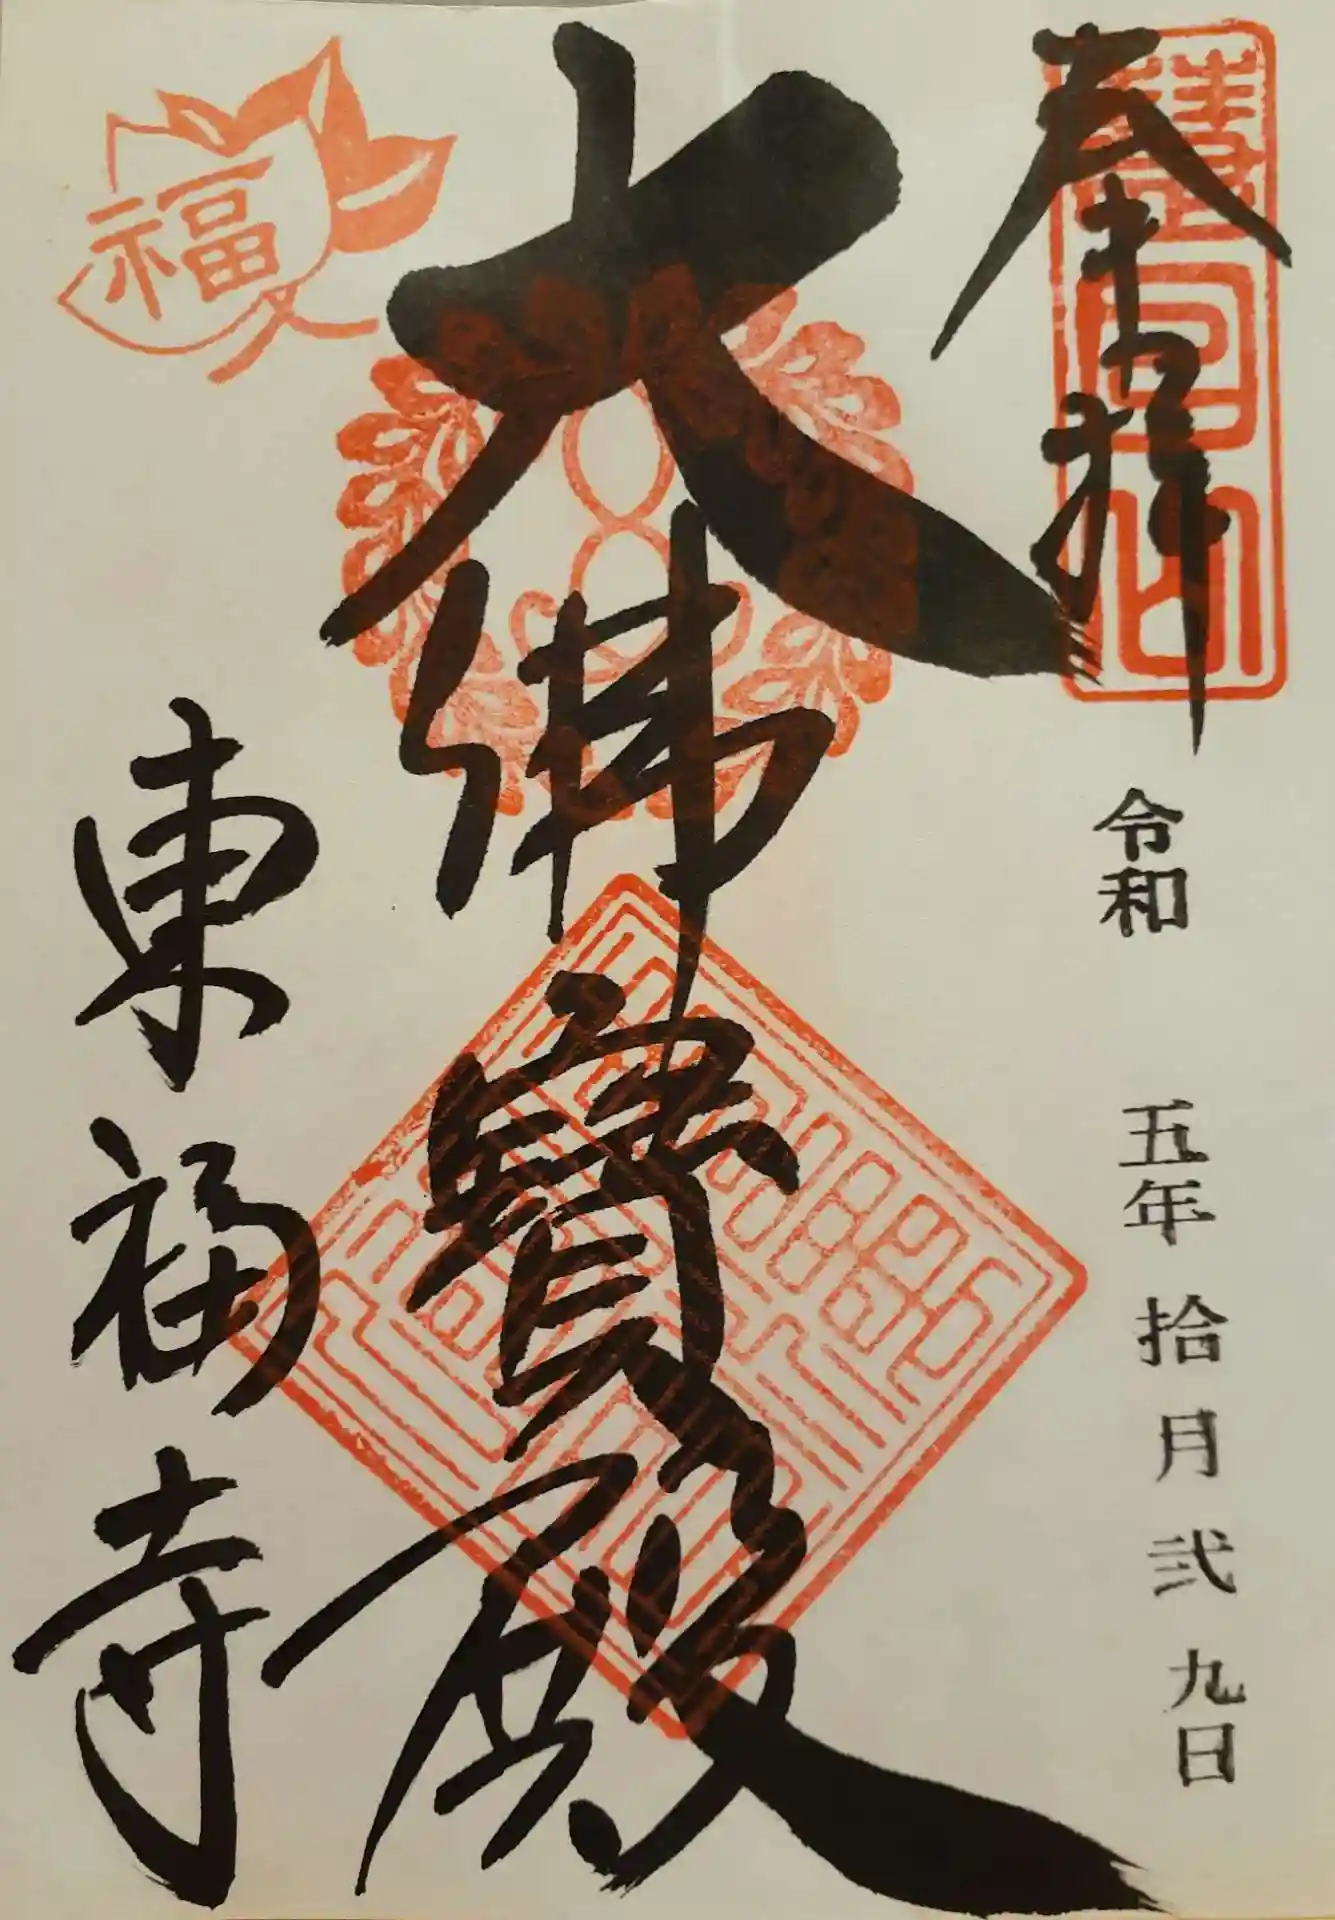 奉拝
慧日山
令和 五年 拾月 弐九日
大佛寶殿
東福寺
福